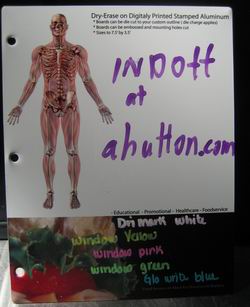 Dry-Erase on Digitaly Printed Stamped Aluminum
* Boards can be die cut to your custom outline ( die charge applies)
* Boards can be embossed and mounting holes cut
* Sizes to 7.5' by 3.5'
INDOff
at
ahutton.com
- Educational - Promotional - Healthcare - Foodservice
Dri mark white
window Yellow
window pink
window green
Glo write blue